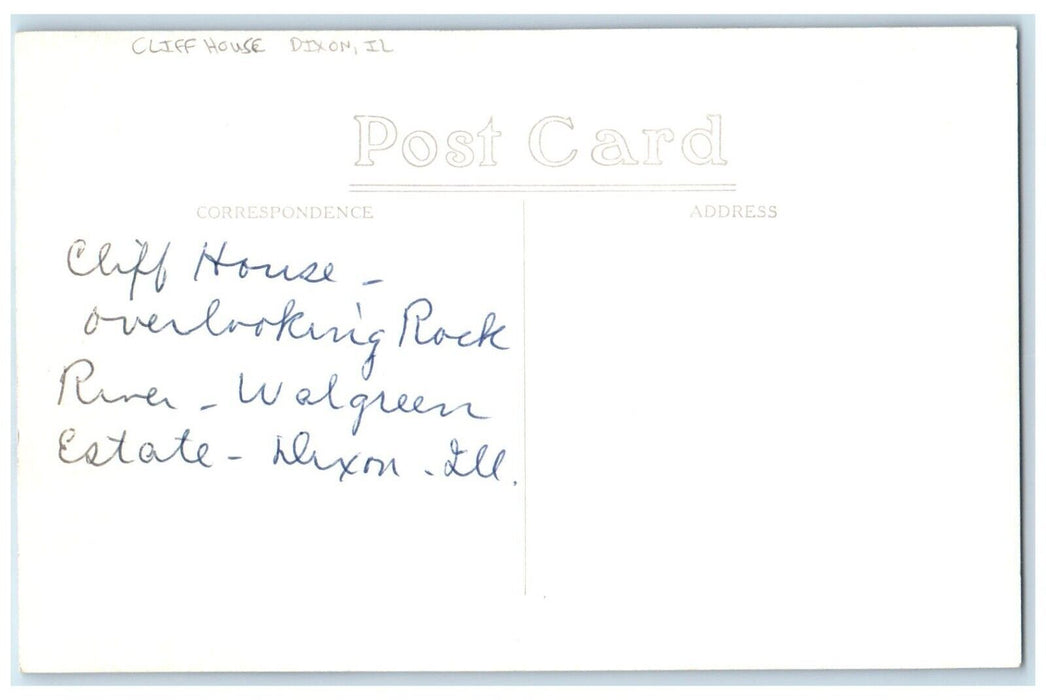 CLIFF HOUSE DIXON, IL
Post Card
CORRESPONDENCE
ADDRESS
Cliff House -
overlooking Rock
River - Walgreen
Estate - Dixon - Ill.